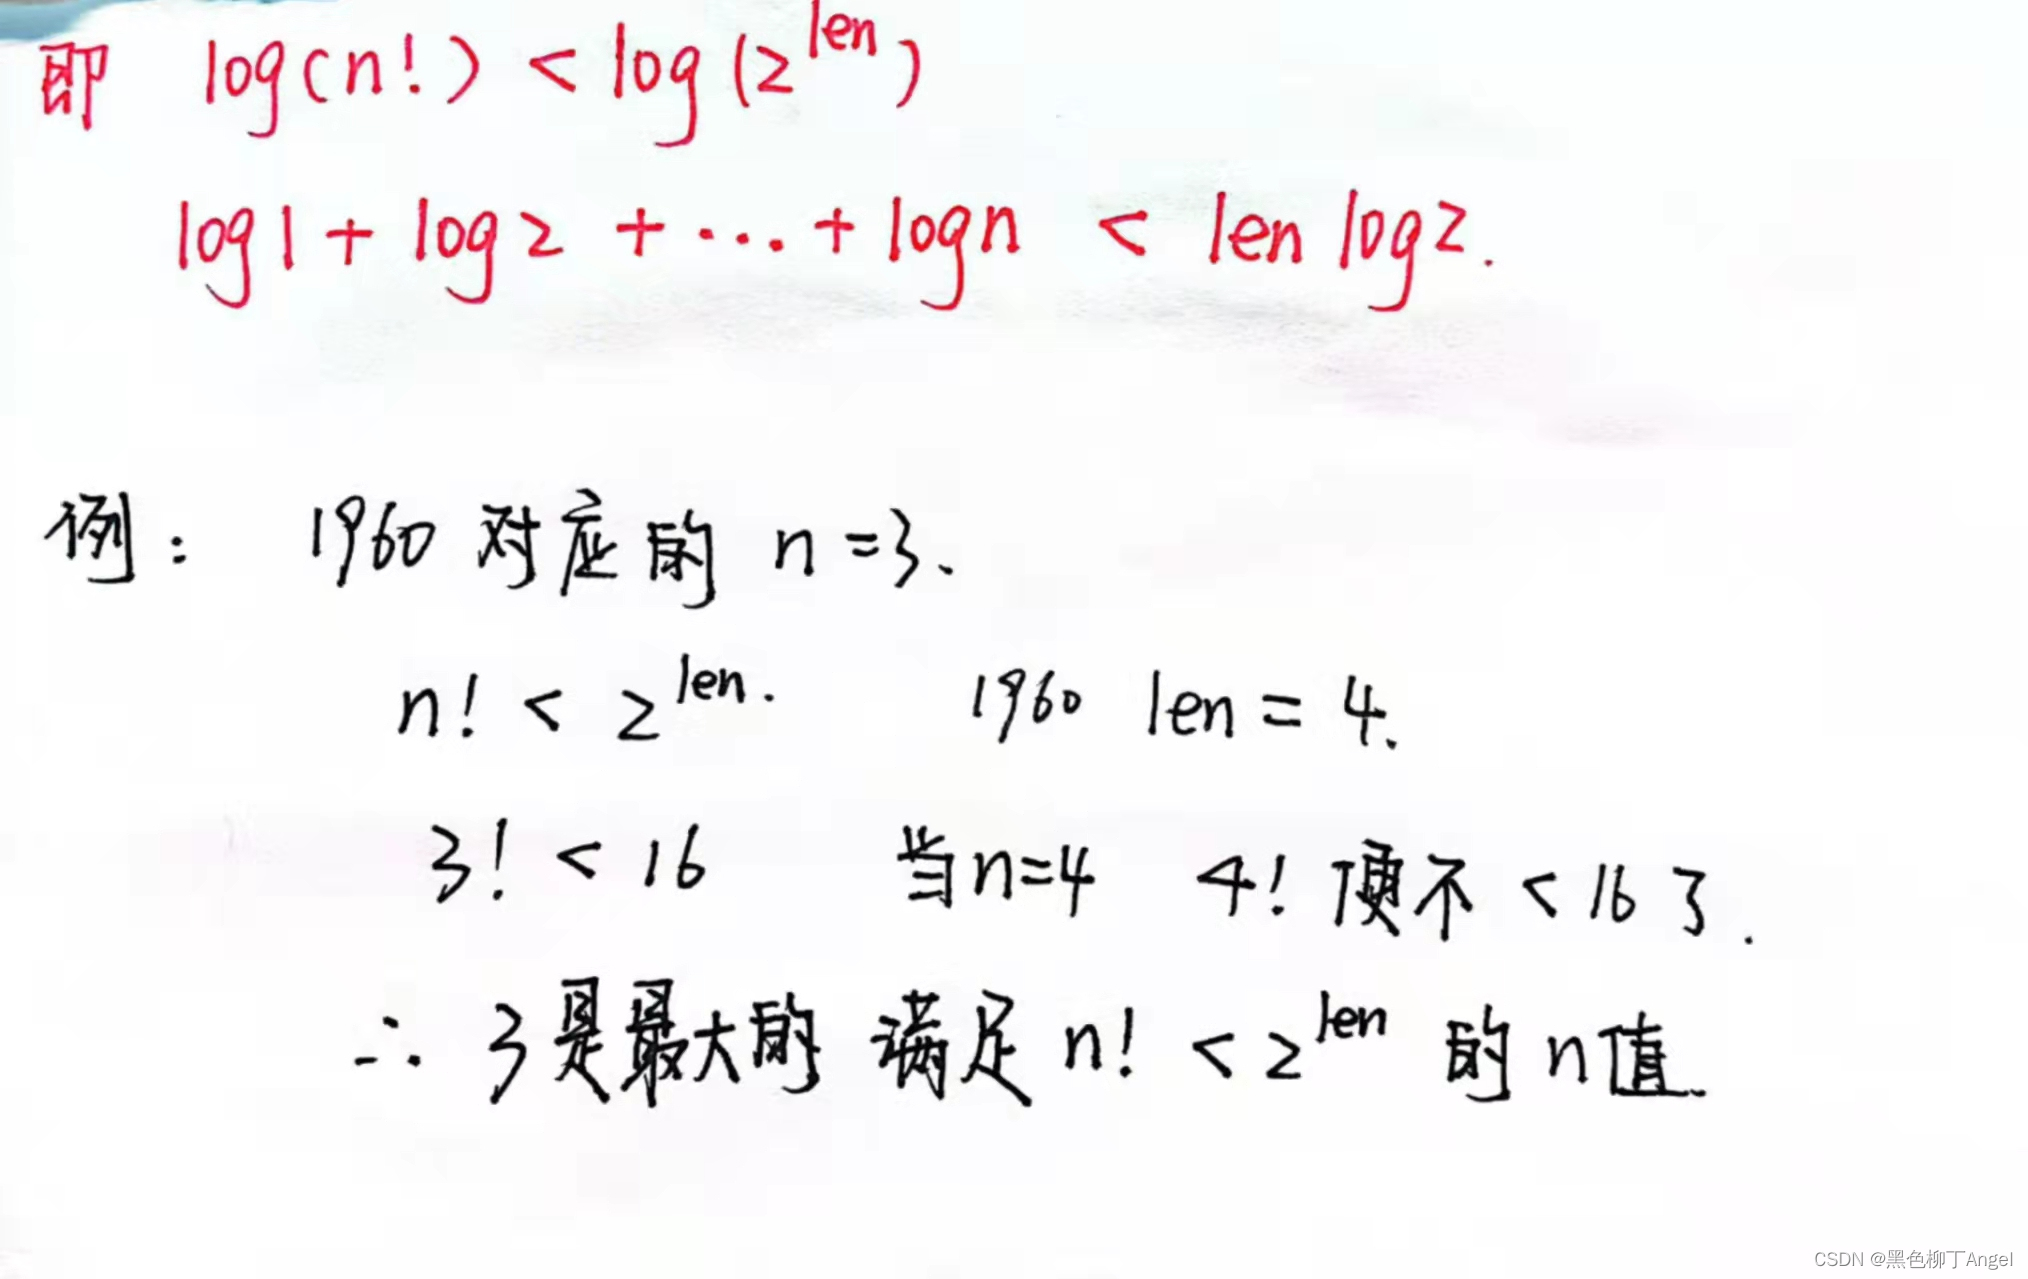 即 log(n!) < log(2^len)
log1 + log2 + ... + logn < len log2.
例: 1960 对应的 n=3.
n! < 2^len. 1960 len = 4.
3! < 16 当n=4 4! 便不 < 16 了.
∴ 3是最大的 满足 n! < 2^len 的 n值.
CSDN @黑色柳丁Angel